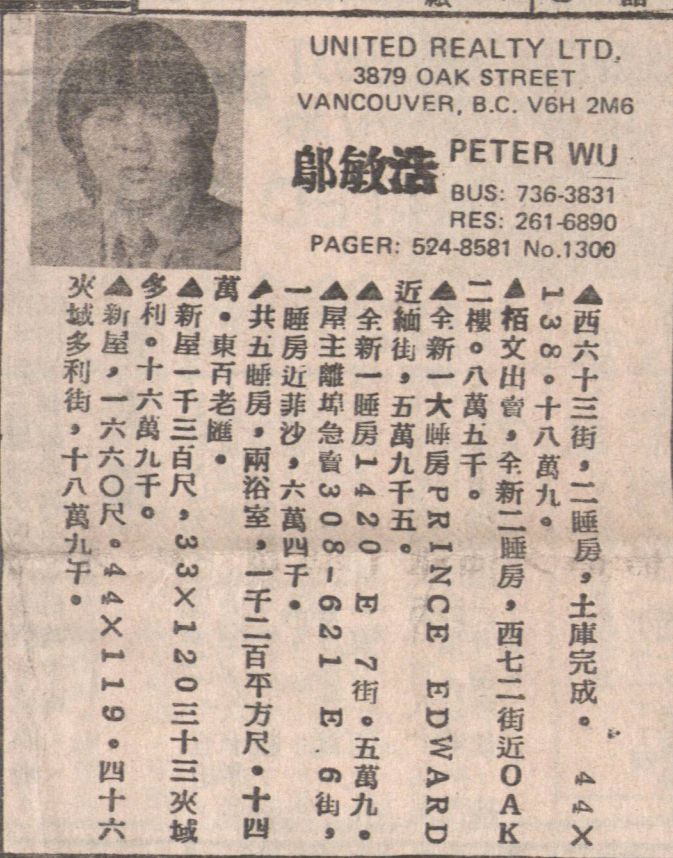 UNITED REALTY LTD,
3879 OAK STREET
VANCOUVER, B.C. V6H 2M6
鄔敏浩 PETER WU
BUS: 736-3831
RES: 261-6890
PAGER: 524-8581 No.1300
▲西六十三街，二睡房，土庫完成。44×
138。十八萬九。
▲栢文出賣，全新二睡房，西七二街近OAK
二樓。八萬五千。
▲全新一大睡房PRINCE EDWARD
近緬街，五萬九千五。
▲全新一睡房1420 E 7街。五萬九。
▲屋主離埠急賣308-621 E 6街，
一睡房近菲沙，六萬四千。
▲共五睡房，兩浴室，一千二百平方尺。十四
萬。東百老匯。
▲新屋一千三百尺，33×120三十三夾域
多利。十六萬九千。
▲新屋，一六六〇尺。44×119。四十六
夾域多利街，十八萬九千。